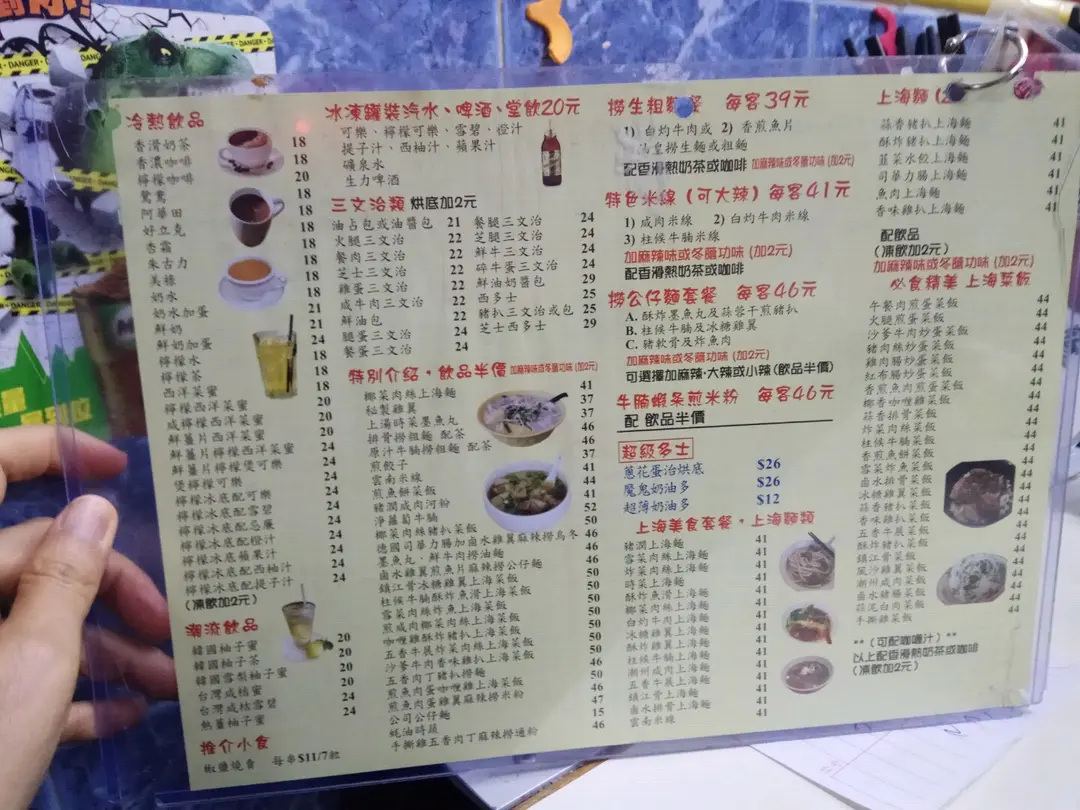 冷熱飲品
香滑奶茶 18
香濃咖啡 18
檸檬咖啡 20
鴛鴦 18
阿華田 18
好立克 18
杏霜 18
朱古力 18
美祿 18
奶水 18
奶水加蛋 21
鮮奶 21
鮮奶加蛋 24
檸檬水 18
檸檬茶 18
西洋菜蜜 18
檸檬西洋菜蜜 20
咸檸檬西洋菜蜜 20
鮮薑片西洋菜蜜 20
鮮薑片檸檬西洋菜蜜 24
鮮薑片檸檬煲可樂 24
煲檸檬可樂 24
檸檬冰底配可樂 24
檸檬冰底配雪碧 24
檸檬冰底配忌廉 24
檸檬冰底配橙汁 24
檸檬冰底配蘋果汁 24
檸檬冰底配西柚汁 24
檸檬冰底配提子汁 24
(凍飲加2元)
潮流飲品
韓國柚子蜜 20
韓國柚子茶 20
韓國雪梨柚子蜜 20
台灣咸桔蜜 20
台灣咸桔雪碧 24
熱薑柚子蜜 24
推介小食
椒鹽燒賣 每串$11/7粒
冰凍罐裝汽水、啤酒、堂飲20元
可樂、檸檬可樂、雪碧、橙汁
提子汁、西柚汁、蘋果汁
礦泉水
生力啤酒
三文治類 烘底加2元
油占包或油醬包 21
火腿三文治 22
餐肉三文治 22
芝士三文治 22
雞蛋三文治 22
咸牛肉三文治 22
鮮油包 22
腿蛋三文治 24
餐蛋三文治 24
餐腿三文治 24
芝腿三文治 24
鮮牛三文治 24
碎牛蛋三文治 24
鮮油奶醬包 29
西多士 25
豬扒三文治或包 25
芝士西多士 29
特別介紹。飲品半價 加麻辣味或冬蔭功味 (加2元)
椰菜肉絲上海麵 41
秘製雞翼 37
上湯時菜墨魚丸 37
排骨撈粗麵 配茶 46
原汁牛腩撈粗麵 配茶 46
煎餃子 37
雲南米線 41
煎魚餅菜飯 44
豬潤咸肉河粉 41
淨蘿蔔牛腩 52
椰菜肉絲豬扒菜飯 50
德國司華力腸加鹵水雞翼麻辣撈烏冬 46
墨魚丸、鮮牛肉撈油麵 46
鹵水雞翼煎魚片麻辣撈公仔麵 46
鎮江骨冰糖雞翼上海菜飯 50
柱侯牛腩酥炸魚滑上海菜飯 50
雪菜肉絲炸魚上海菜飯 50
煎咸肉椰菜肉絲上海菜飯 50
咖喱雞酥炸豬扒上海菜飯 50
五香牛展炸菜肉絲上海菜飯 50
沙爹牛肉香味雞扒上海菜飯 50
五香肉丁豬扒麵 46
煎魚肉蛋咖喱雞上海菜飯 50
煎魚肉雞翼麻辣撈米粉 46
公司公仔麵 47
蚝油時蔬 15
手撕雞五香肉丁麻辣撈通粉 46
撈生粗麵餐 每客39元
1) 白灼牛肉或 2) 香煎魚片
油皇撈生麵或粗麵
配香滑熱奶茶或咖啡 加麻辣味或冬蔭功味 (加2元)
特色米線(可大辣) 每客41元
1) 咸肉米線 2) 白灼牛肉米線
3) 柱侯牛腩米線
加麻辣味或冬蔭功味 (加2元)
配香滑熱奶茶或咖啡
撈公仔麵套餐 每客46元
A. 酥炸墨魚丸及蒜蓉干煎豬扒
B. 柱侯牛腩及冰糖雞翼
C. 豬軟骨及炸魚肉
加麻辣味或冬蔭功味 (加2元)
可選擇加麻辣，大辣或小辣 (飲品半價)
牛腩蝦条煎米粉 每客46元
配 飲品半價
超級多士
蔥花蛋治烘底 $26
魔鬼奶油多 $26
超薄奶油多 $12
上海美食套餐。上海麵類
豬潤上海麵 41
雪菜肉絲上海麵 41
炸菜肉絲上海麵 41
時菜上海麵 41
酥炸魚滑上海麵 41
椰菜肉絲上海麵 41
白灼牛肉上海麵 41
冰糖雞翼上海麵 41
酥炸雞翼上海麵 41
柱侯牛腩上海麵 41
潮州咸肉上海麵 41
五香牛展上海麵 41
鎮江骨上海麵 41
鹵水排骨上海麵 41
雲南米線 41
上海麵 (2
蒜香豬扒上海麵 41
酥炸豬扒上海麵 41
韮菜水餃上海麵 41
司華力腸上海麵 41
魚肉上海麵 41
香味雞扒上海麵 41
配飲品
(凍飲加2元)
加麻辣味或冬蔭功味 (加2元)
必食精美 上海菜飯
午餐肉煎蛋菜飯 44
火腿煎蛋菜飯 44
沙爹牛肉炒蛋菜飯 44
豬肉絲炒蛋菜飯 44
雞肉腸炒蛋菜飯 44
紅布腸炒蛋菜飯 44
香煎魚肉煎蛋菜飯 44
椰香咖喱雞菜飯 44
蒜香排骨菜飯 44
炸菜肉絲菜飯 44
柱侯牛腩菜飯 44
香煎魚餅菜飯 44
雪菜炸魚菜飯 44
鹵水排骨菜飯 44
冰糖雞翼菜飯 44
蒜香豬扒菜飯 44
香味雞扒菜飯 44
五香牛展菜飯 44
酥炸豬扒菜飯 44
鎮江骨菜飯 44
風沙雞翼菜飯 44
潮州咸肉菜飯 44
鹵水豬腸菜飯 44
蒜泥白肉菜飯 44
手撕雞菜飯 44
**(可配咖喱汁)**
以上配香滑熱奶茶或咖啡
(凍飲加2元)
DANGER